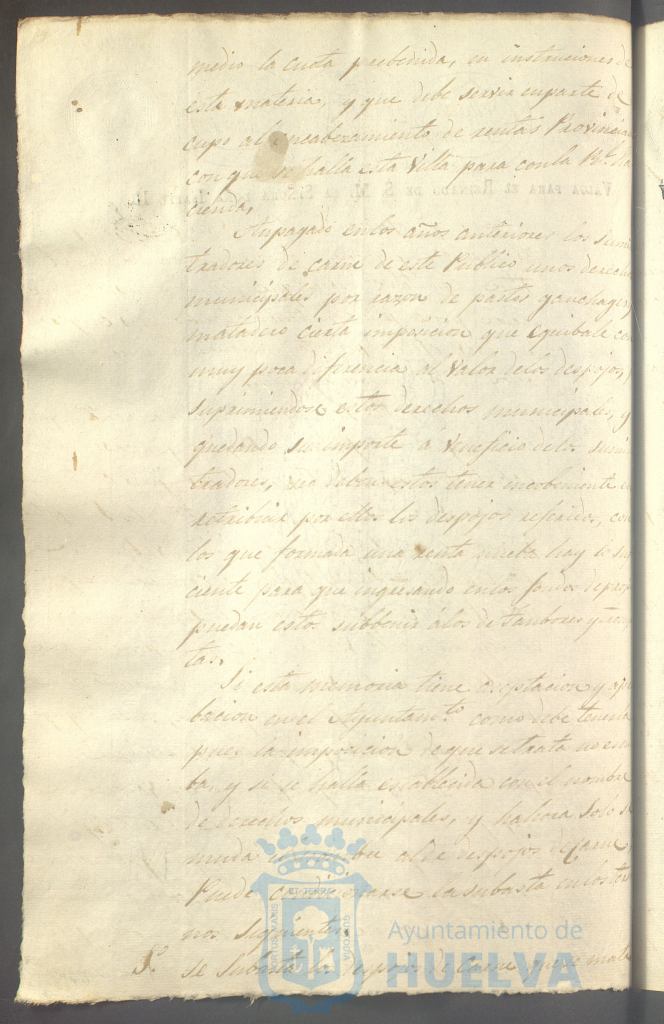 medio la cuota precbedida, en instrucciones de
esta materia, y que debe servir en parte de
cupo al encabezamiento de rentas Provincia
con que se halla esta Villa para con la Rl. ha
VALGA PARA EL REINADO DE S. M. LA SEÑORA
cienda,
An pagado en los años anteriores los sumi
tradores de Carne de este Publico unos derechos
municipales por razon de pastos
matadero cierta imposicion que equibale con
muy poca diferencia al valor de los despojos,
suprimiendose estos derechos municipales, y
quedando su importe a veneficio de los sumi
tradores, no deben estos tener incobeniente en
retribuir por ellos los despojos referidos, con
los que formada una renta nueba hay
ciente para que ingresando en los fondos de prop
puedan estos subbenir á los de Tanbores y
tas.
Si esta memoria tiene aceptacion y
bacion en el Ayuntamto. como debe tenerla
pues la imposicion de que se trata no es
ba, y si se halla establecida con el nombre
de derechos municipales, y hahora solo se
muda al de despojos de Carne,
Puede la subasta en los
nos siguientes
se subasta los despojos de Carne que se mate
Ayuntamiento de
HUELVA